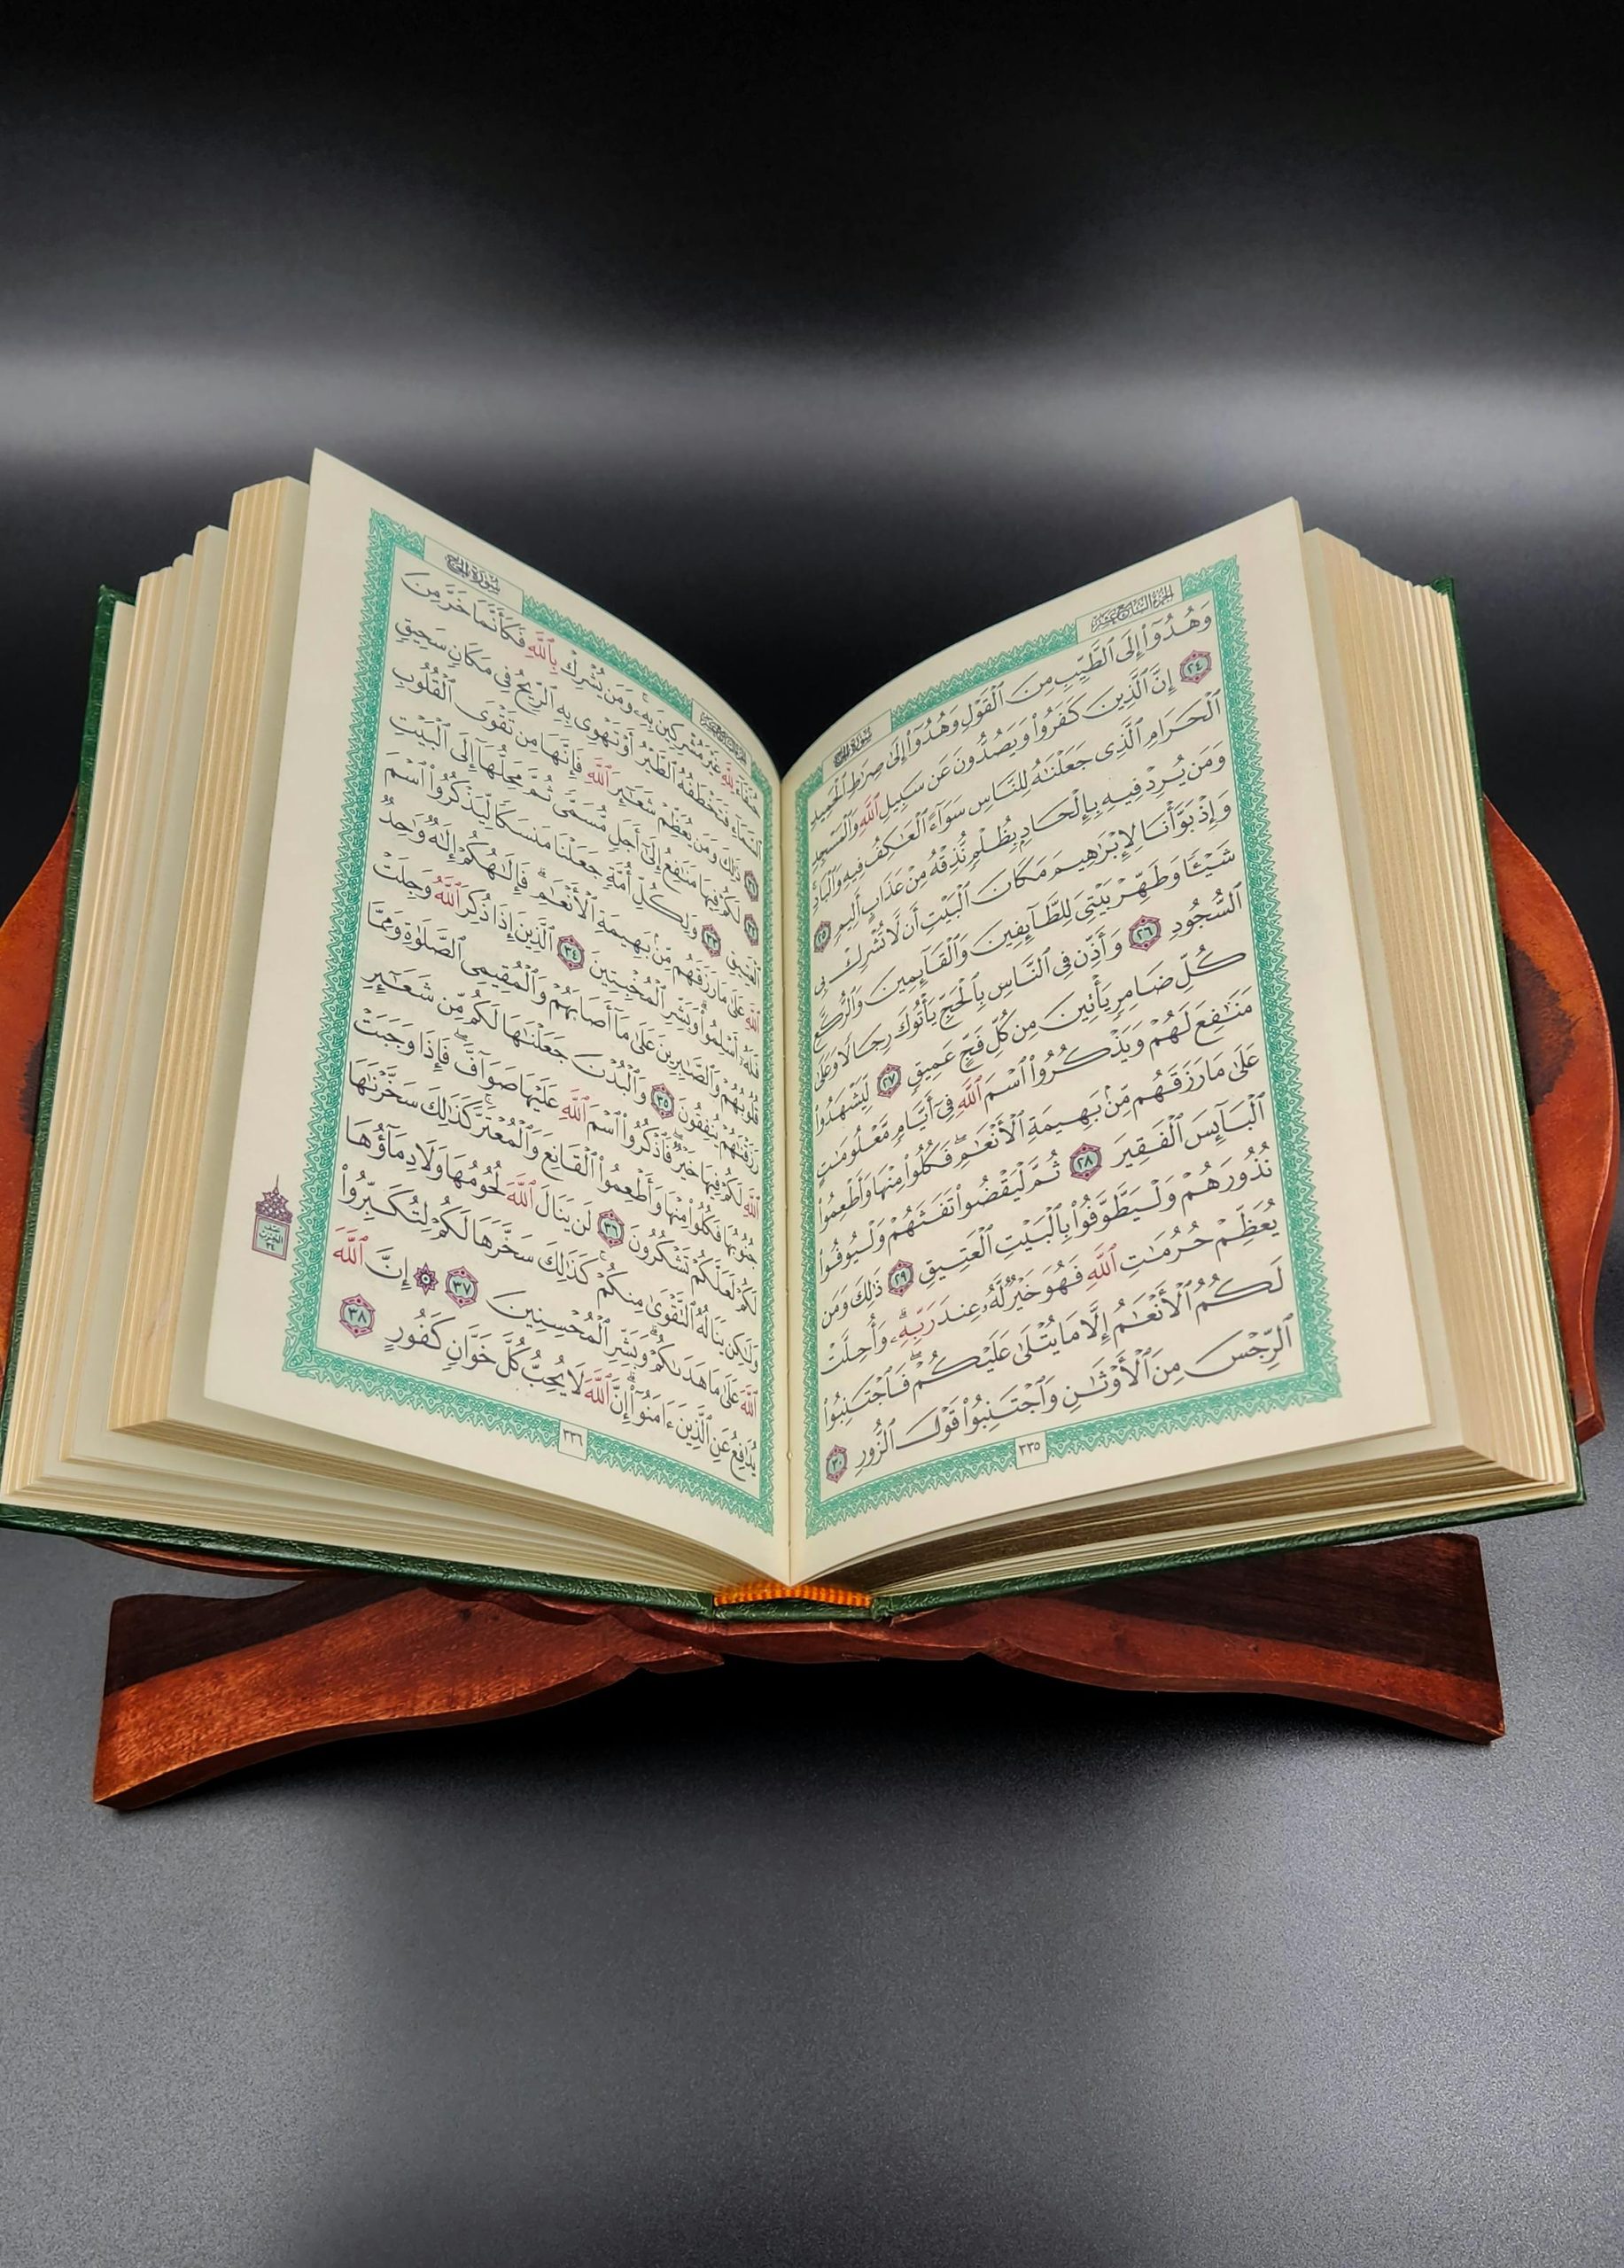 الجزء السابع عشر
سورة الحج
وَهُدُوٓا۟ إِلَى ٱلطَّيِّبِ مِنَ ٱلْقَوْلِ وَهُدُوٓا۟ إِلَىٰ صِرَٰطِ ٱلْحَمِيدِ
٢٤ إِنَّ ٱلَّذِينَ كَفَرُوا۟ وَيَصُدُّونَ عَن سَبِيلِ ٱللَّهِ وَٱلْمَسْجِدِ
ٱلْحَرَامِ ٱلَّذِى جَعَلْنَٰهُ لِلنَّاسِ سَوَآءً ٱلْعَٰكِفُ فِيهِ وَٱلْبَادِ
وَمَن يُرِدْ فِيهِ بِإِلْحَادٍۭ بِظُلْمٍ نُّذِقْهُ مِنْ عَذَابٍ أَلِيمٍ ٢٥
وَإِذْ بَوَّأْنَا لِإِبْرَٰهِيمَ مَكَانَ ٱلْبَيْتِ أَن لَّا تُشْرِكْ بِى
شَيْـًٔا وَطَهِّرْ بَيْتِىَ لِلطَّآئِفِينَ وَٱلْقَآئِمِينَ وَٱلرُّكَّعِ
ٱلسُّجُودِ ٢٦ وَأَذِّن فِى ٱلنَّاسِ بِٱلْحَجِّ يَأْتُوكَ رِجَالًا وَعَلَىٰ
كُلِّ ضَامِرٍ يَأْتِينَ مِن كُلِّ فَجٍّ عَمِيقٍ ٢٧ لِّيَشْهَدُوا۟
مَنَٰفِعَ لَهُمْ وَيَذْكُرُوا۟ ٱسْمَ ٱللَّهِ فِىٓ أَيَّامٍ مَّعْلُومَٰتٍ
عَلَىٰ مَا رَزَقَهُم مِّنۢ بَهِيمَةِ ٱلْأَنْعَٰمِ ۖ فَكُلُوا۟ مِنْهَا وَأَطْعِمُوا۟
ٱلْبَآئِسَ ٱلْفَقِيرَ ٢٨ ثُمَّ لْيَقْضُوا۟ تَفَثَهُمْ وَلْيُوفُوا۟
نُذُورَهُمْ وَلْيَطَّوَّفُوا۟ بِٱلْبَيْتِ ٱلْعَتِيقِ ٢٩ ذَٰلِكَ وَمَن
يُعَظِّمْ حُرُمَٰتِ ٱللَّهِ فَهُوَ خَيْرٌ لَّهُۥ عِندَ رَبِّهِۦ ۗ وَأُحِلَّتْ
لَكُمُ ٱلْأَنْعَٰمُ إِلَّا مَا يُتْلَىٰ عَلَيْكُمْ ۖ فَٱجْتَنِبُوا۟
ٱلرِّجْسَ مِنَ ٱلْأَوْثَٰنِ وَٱجْتَنِبُوا۟ قَوْلَ ٱلزُّورِ ٣٠
٣٣٥
سورة الحج
حُنَفَآءَ لِلَّهِ غَيْرَ مُشْرِكِينَ بِهِۦ ۚ وَمَن يُشْرِكْ بِٱللَّهِ فَكَأَنَّمَا خَرَّ مِنَ
ٱلسَّمَآءِ فَتَخْطَفُهُ ٱلطَّيْرُ أَوْ تَهْوِى بِهِ ٱلرِّيحُ فِى مَكَانٍ سَحِيقٍ
٣١ ذَٰلِكَ وَمَن يُعَظِّمْ شَعَٰٓئِرَ ٱللَّهِ فَإِنَّهَا مِن تَقْوَى ٱلْقُلُوبِ
٣٢ لَكُمْ فِيهَا مَنَٰفِعُ إِلَىٰٓ أَجَلٍ مُّسَمًّى ثُمَّ مَحِلُّهَآ إِلَى ٱلْبَيْتِ
ٱلْعَتِيقِ ٣٣ وَلِكُلِّ أُمَّةٍ جَعَلْنَا مَنسَكًا لِّيَذْكُرُوا۟ ٱسْمَ
ٱللَّهِ عَلَىٰ مَا رَزَقَهُم مِّنۢ بَهِيمَةِ ٱلْأَنْعَٰمِ ۗ فَإِلَٰهُكُمْ إِلَٰهٌ وَٰحِدٌ
فَلَهُۥٓ أَسْلِمُوا۟ ۗ وَبَشِّرِ ٱلْمُخْبِتِينَ ٣٤ ٱلَّذِينَ إِذَا ذُكِرَ ٱللَّهُ وَجِلَتْ
قُلُوبُهُمْ وَٱلصَّٰبِرِينَ عَلَىٰ مَآ أَصَابَهُمْ وَٱلْمُقِيمِى ٱلصَّلَوٰةِ وَمِمَّا
رَزَقْنَٰهُمْ يُنفِقُونَ ٣٥ وَٱلْبُدْنَ جَعَلْنَٰهَا لَكُم مِّن شَعَٰٓئِرِ
ٱللَّهِ لَكُمْ فِيهَا خَيْرٌ ۖ فَٱذْكُرُوا۟ ٱسْمَ ٱللَّهِ عَلَيْهَا صَوَآفَّ ۖ فَإِذَا وَجَبَتْ
جُنُوبُهَا فَكُلُوا۟ مِنْهَا وَأَطْعِمُوا۟ ٱلْقَانِعَ وَٱلْمُعْتَرَّ ۚ كَذَٰلِكَ سَخَّرْنَٰهَا
لَكُمْ لَعَلَّكُمْ تَشْكُرُونَ ٣٦ لَن يَنَالَ ٱللَّهَ لُحُومُهَا وَلَا دِمَآؤُهَا
وَلَٰكِن يَنَالُهُ ٱلتَّقْوَىٰ مِنكُمْ ۚ كَذَٰلِكَ سَخَّرَهَا لَكُمْ لِتُكَبِّرُوا۟
ٱللَّهَ عَلَىٰ مَا هَدَىٰكُمْ ۗ وَبَشِّرِ ٱلْمُحْسِنِينَ ٣٧ ۞ إِنَّ ٱللَّهَ
يُدَٰفِعُ عَنِ ٱلَّذِينَ ءَامَنُوٓا۟ ۗ إِنَّ ٱللَّهَ لَا يُحِبُّ كُلَّ خَوَّانٍ كَفُورٍ ٣٨
٣٣٦